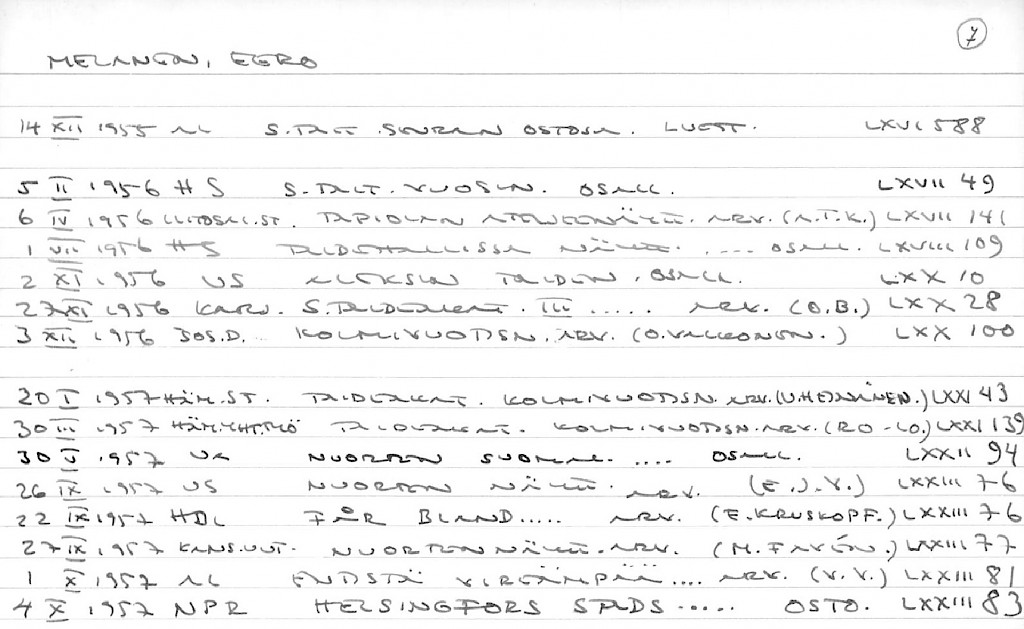 7
MELANEN, EERO
14 XII 1955 AL S.TAIT.SEURAN OSTOJA. LUETT. LXVI 588
5 II 1956 HS S.TAIT.VUOSIN. OSALL. LXVII 49
6 IV 1956 UUTOSAL.ST. TAPIOLAN ATELJEENÄYTT. ARV. (A.T.K.) LXVII 141
1 VII 1956 HS TAIDEHALLISSA NÄYTT. .... OSALL. LXVIII 109
2 XI 1956 US ALEKSIN TAIDEN. OSALL. LXX 10
27 XI 1956 KARJ. S.TAIDEAKAT. III ..... ARV. (O.B.) LXX 28
3 XII 1956 SOS.D. KOLMIVUOTISN. ARV. (O.VALKONEN.) LXX 100
20 I 1957 HÄM.ST. TAIDEAKAT. KOLMIVUOTISN. ARV. (U.HEINÄNEN.) LXXI 43
30 III 1957 HÄM.YHTEISTYÖ TAIDEAKAT. KOLMIVUOTISN. ARV. (RO-LO.) LXXI 139
30 V 1957 UA NUORTEN SUOMAL. .... OSALL. LXXII 94
26 IX 1957 US NUORTEN NÄYTT. ARV. (E.J.V.) LXXIII 76
22 IX 1957 HDL FÅR BLAND..... ARV. (E.KRUSKOPF.) LXXIII 76
27 IX 1957 KANS.UUT. NUORTEN NÄYTT. ARV. (M.FAVÉN.) LXXIII 77
1 X 1957 AL ENTISTÄ VIREÄMPÄÄ .... ARV. (V.V.) LXXIII 81
4 X 1957 NPR HELSINGFORS STADS ..... OSTO. LXXIII 83